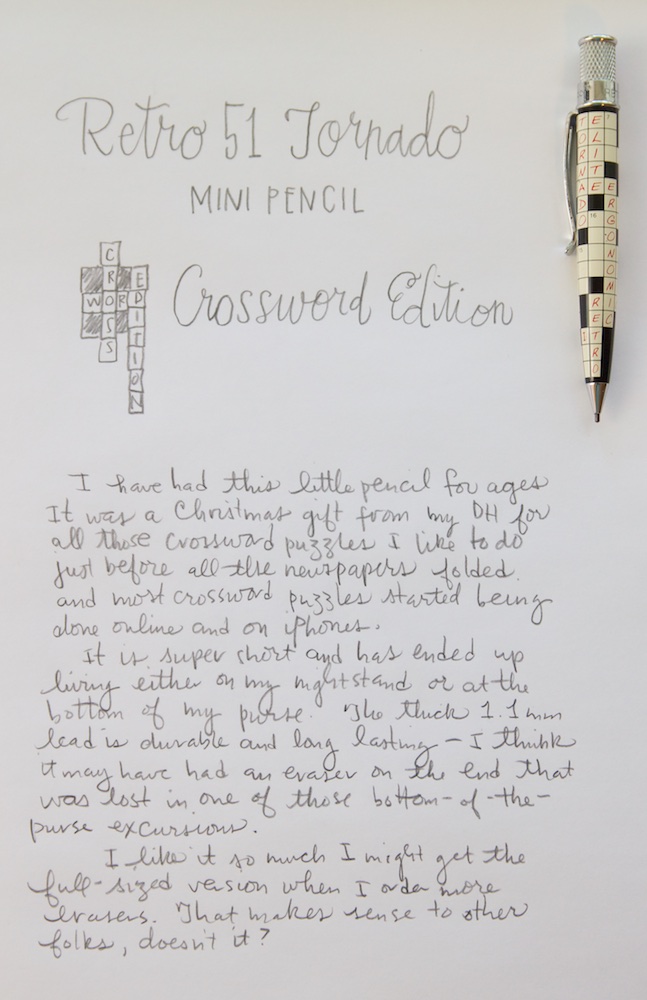 Retro 51 Tornado
MINI PENCIL
CROSSWORD EDITION
Crossword Edition
TORNADO
ELITE
ERGONOMIC
RETRO
I have had this little pencil for ages
It was a Christmas gift from my DH for
all those crossword puzzles I like to do
just before all the newspapers folded.
and most crossword puzzles started being
done online and on iPhones.
It is super short and has ended up
living either on my nightstand or at the
bottom of my purse. The thick 1.1 mm
lead is durable and long lasting – I think
it may have had an eraser on the end that
was lost in one of those bottom-of-the-
purse excursions.
I like it so much I might get the
full-sized version when I order more
erasers. That makes sense to other
folks, doesn't it?